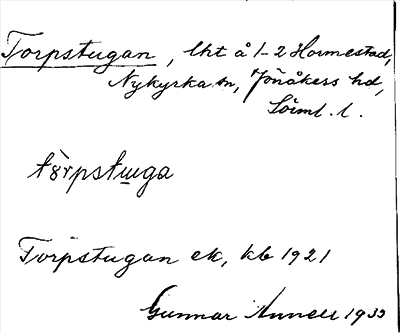 Torpstugan, lht å 1-2 Hormestad,
Nykyrka sn, Jönåkers hd,
Söiml. l.
tòrpstuga
Torpstugan ek, kb 1921
Gunnar Annell 1933